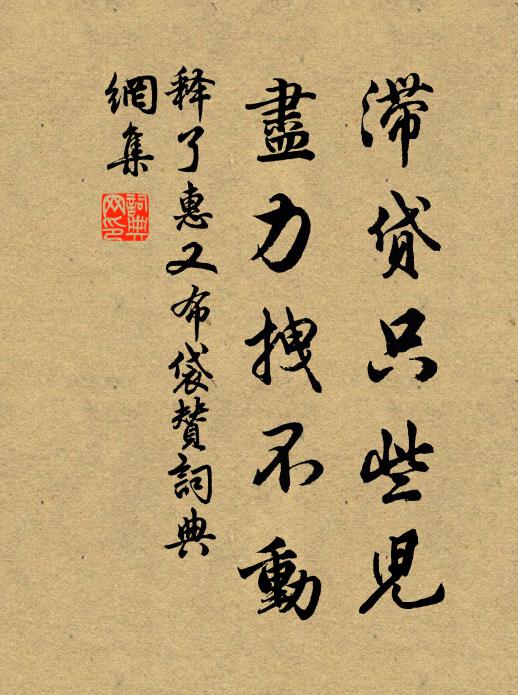 滯貸只些児
盡力拽不動
释了惠又布袋贊詞典
網集
詞典
网印